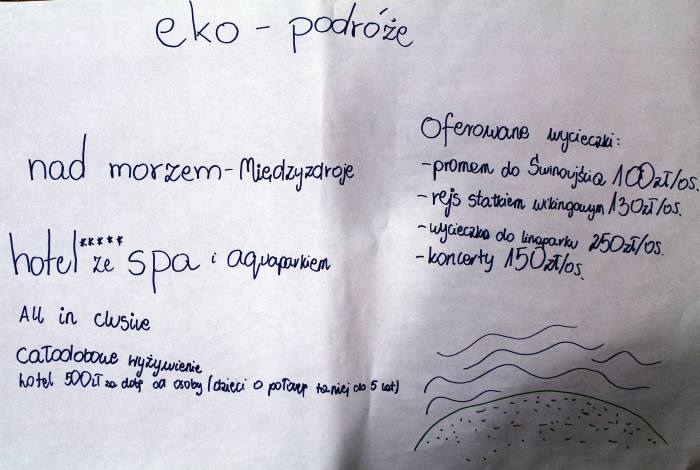 eko - podróże
nad morzem - Międzyzdroje
hotel ***** ze spa i aquaparkiem
All in clusive
Całodobowe wyżywienie
hotel 500zł za dobę od osoby (dzieci o połowę taniej do 5 lat)
Oferowane wycieczki:
- promem do Świnoujścia 100zł/os.
- rejs statkiem wikingowym 130zł/os.
- wycieczka do linaparku 250zł/os.
- koncerty 150zł/os.